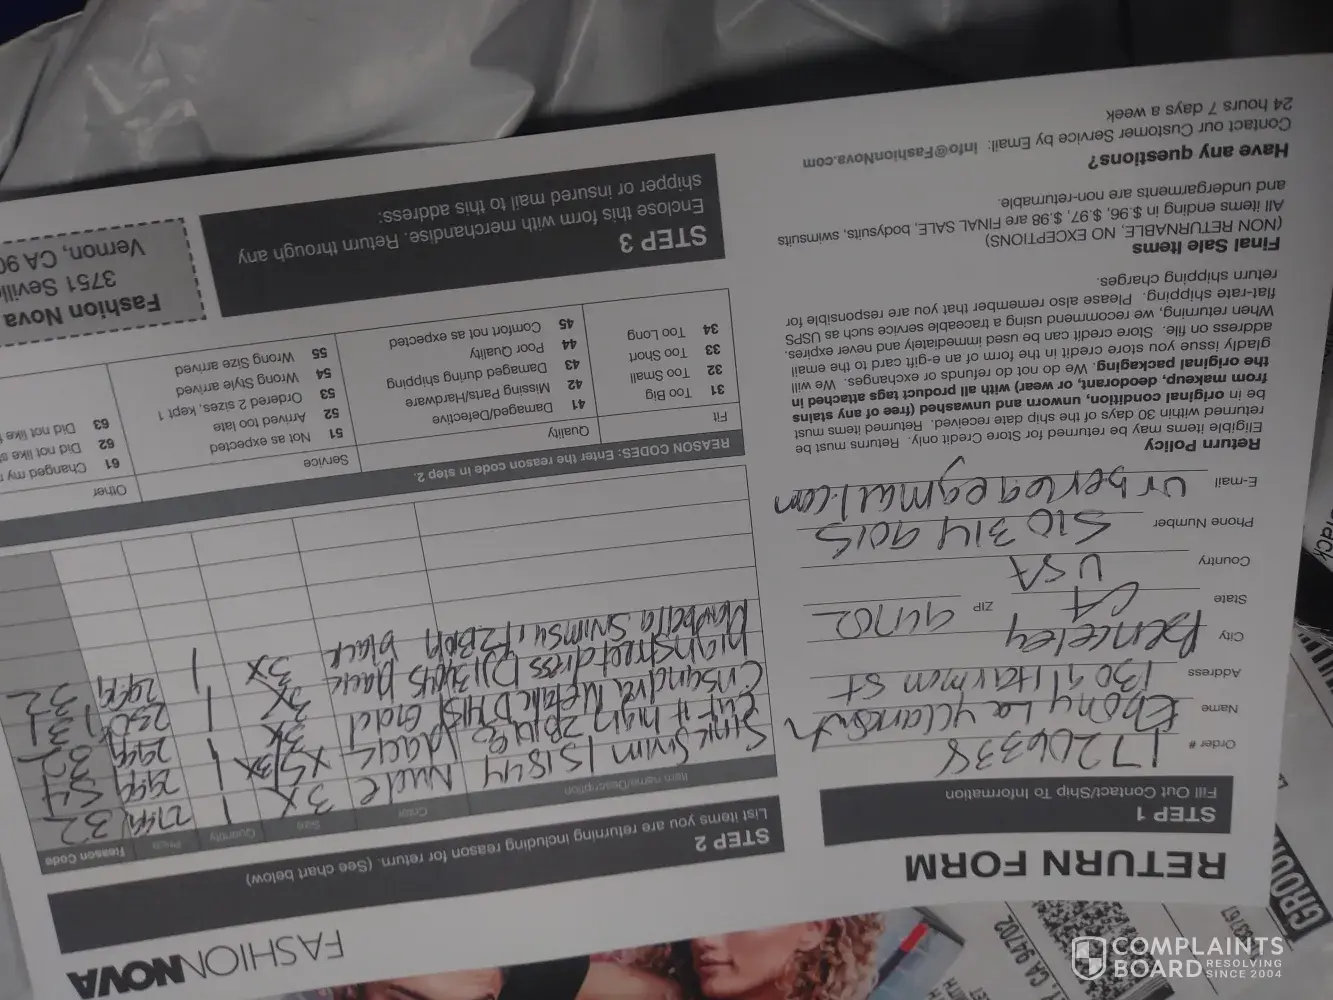 FASHIONNOVA
RETURN FORM
STEP 1
Fill Out Contact/Ship To Information
Order # 17206338
Name Ebony
Address 1309 Harmon St
City
State CA ZIP 94702
Country USA
Phone Number 510 314 9015
E-mail
Return Policy
Eligible items may be returned for Store Credit only. Returns must be
returned within 30 days of the ship date received. Returned items must
be in original condition, unworn and unwashed (free of any stains
from makeup, deodorant, or wear) with all product tags attached in
the original packaging. We do not do refunds or exchanges. We will
gladly issue you store credit in the form of an e-gift card to the email
address on file. Store credit can be used immediately and never expires.
When returning, we recommend using a traceable service such as USPS
flat-rate shipping. Please also remember that you are responsible for
return shipping charges.
Final Sale Items
(NON RETURNABLE, NO EXCEPTIONS)
All items ending in $.96, $.97, $.98 are FINAL SALE, bodysuits, swimsuits
and undergarments are non-returnable.
Have any questions?
Contact our Customer Service by Email: Info@FashionNova.com
24 hours 7 days a week
STEP 2
List items you are returning including reason for return. (See chart below)
Item name/Description Color Size Quantity Price Reason Code
Swim Nude 3X 1 2799 32
high black 1 2999
Gold 3X 1 2999
dress black 3X 1 31
black 3X 1 2999 32
REASON CODES: Enter the reason code in step 2.
Fit Quality Service Other
31 Too Big
32 Too Small
33 Too Short
34 Too Long
41 Damaged/Defective
42 Missing Parts/Hardware
43 Damaged during shipping
44 Poor Quality
45 Comfort not as expected
51 Not as expected
52 Arrived too late
53 Ordered 2 sizes, kept 1
54 Wrong Style arrived
55 Wrong Size arrived
61 Changed my
62 Did not like
63 Did not like
STEP 3
Enclose this form with merchandise. Return through any
shipper or insured mail to this address:
Fashion Nova
3751 Sevill
Vernon, CA 90
GROUN
CA 94702
COMPLAINTS
BOARD RESOLVING
SINCE 2004